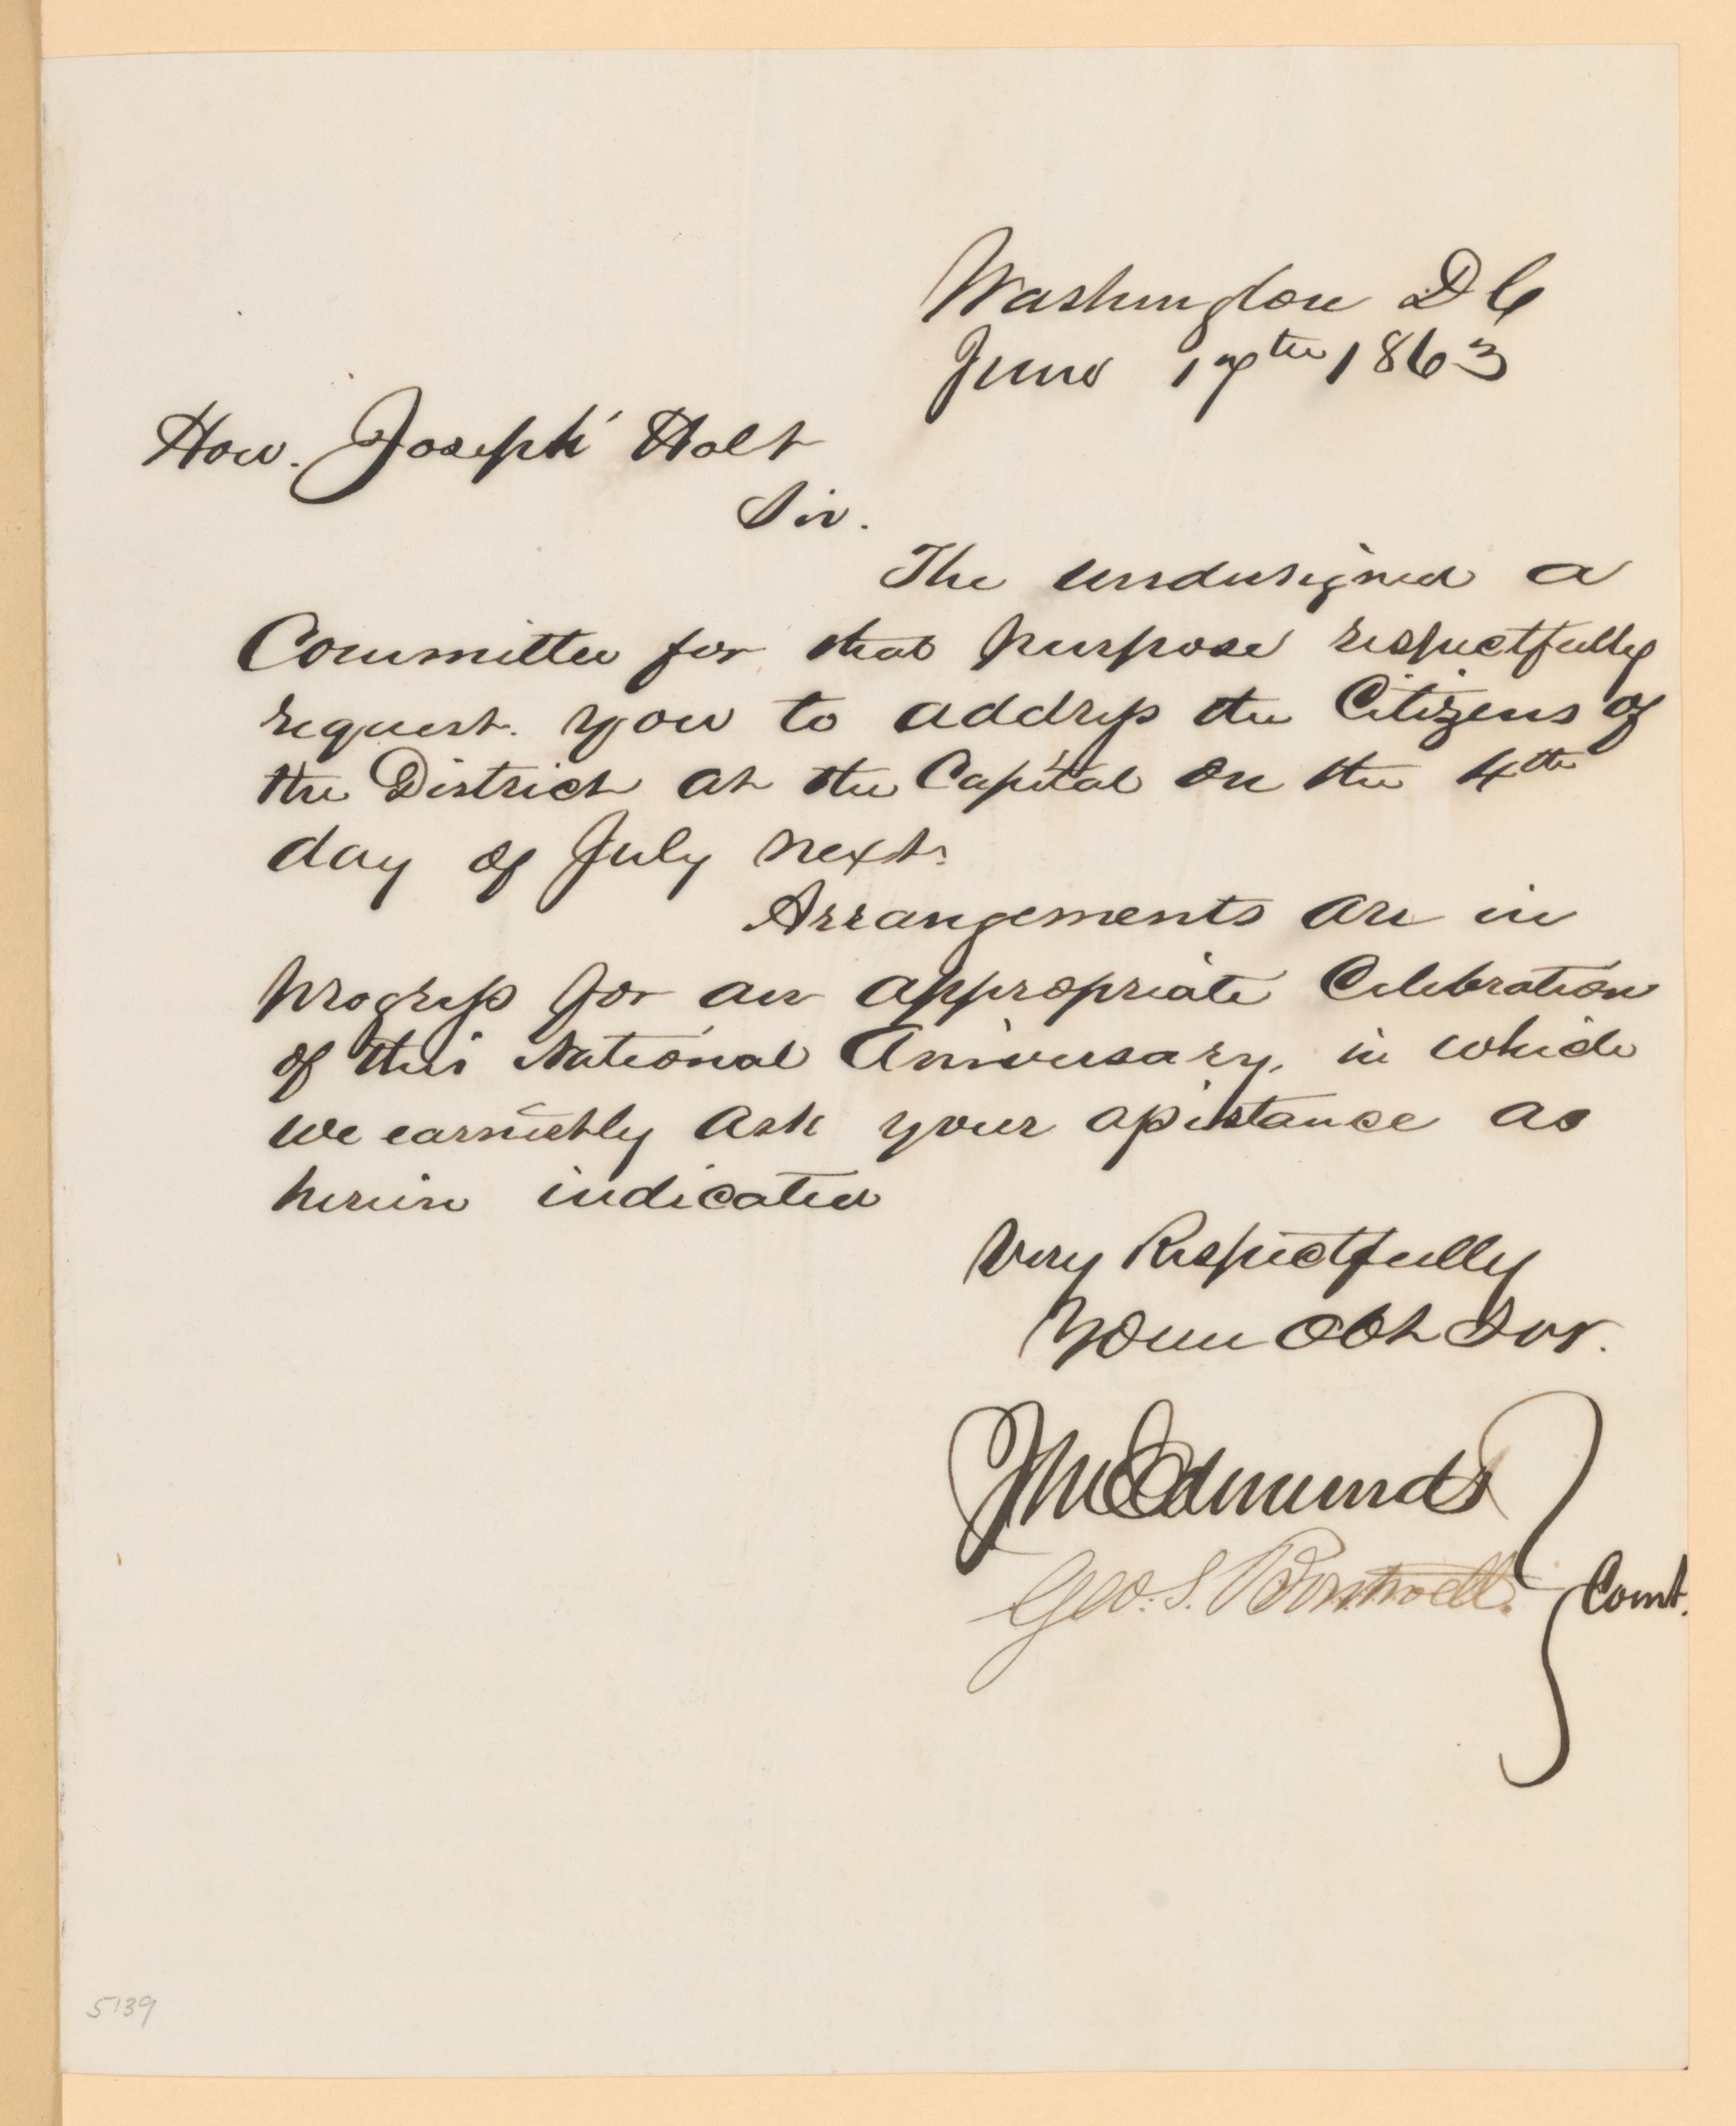 Washington D C
June 17th 1863
Hon. Joseph Holt
Sir.
The undersigned a
Committee for that purpose respectfully
request you to address the Citizens of
the District at the Capital on the 4th
day of July next.
Arrangements are in
progress for an appropriate Celebration
of this National Aniversary, in which
we earnestly ask your assistance as
herein indicated
Very Respectfully
Your Obt Svr.
J M Edmunds
Geo. S.
Comt.
5139